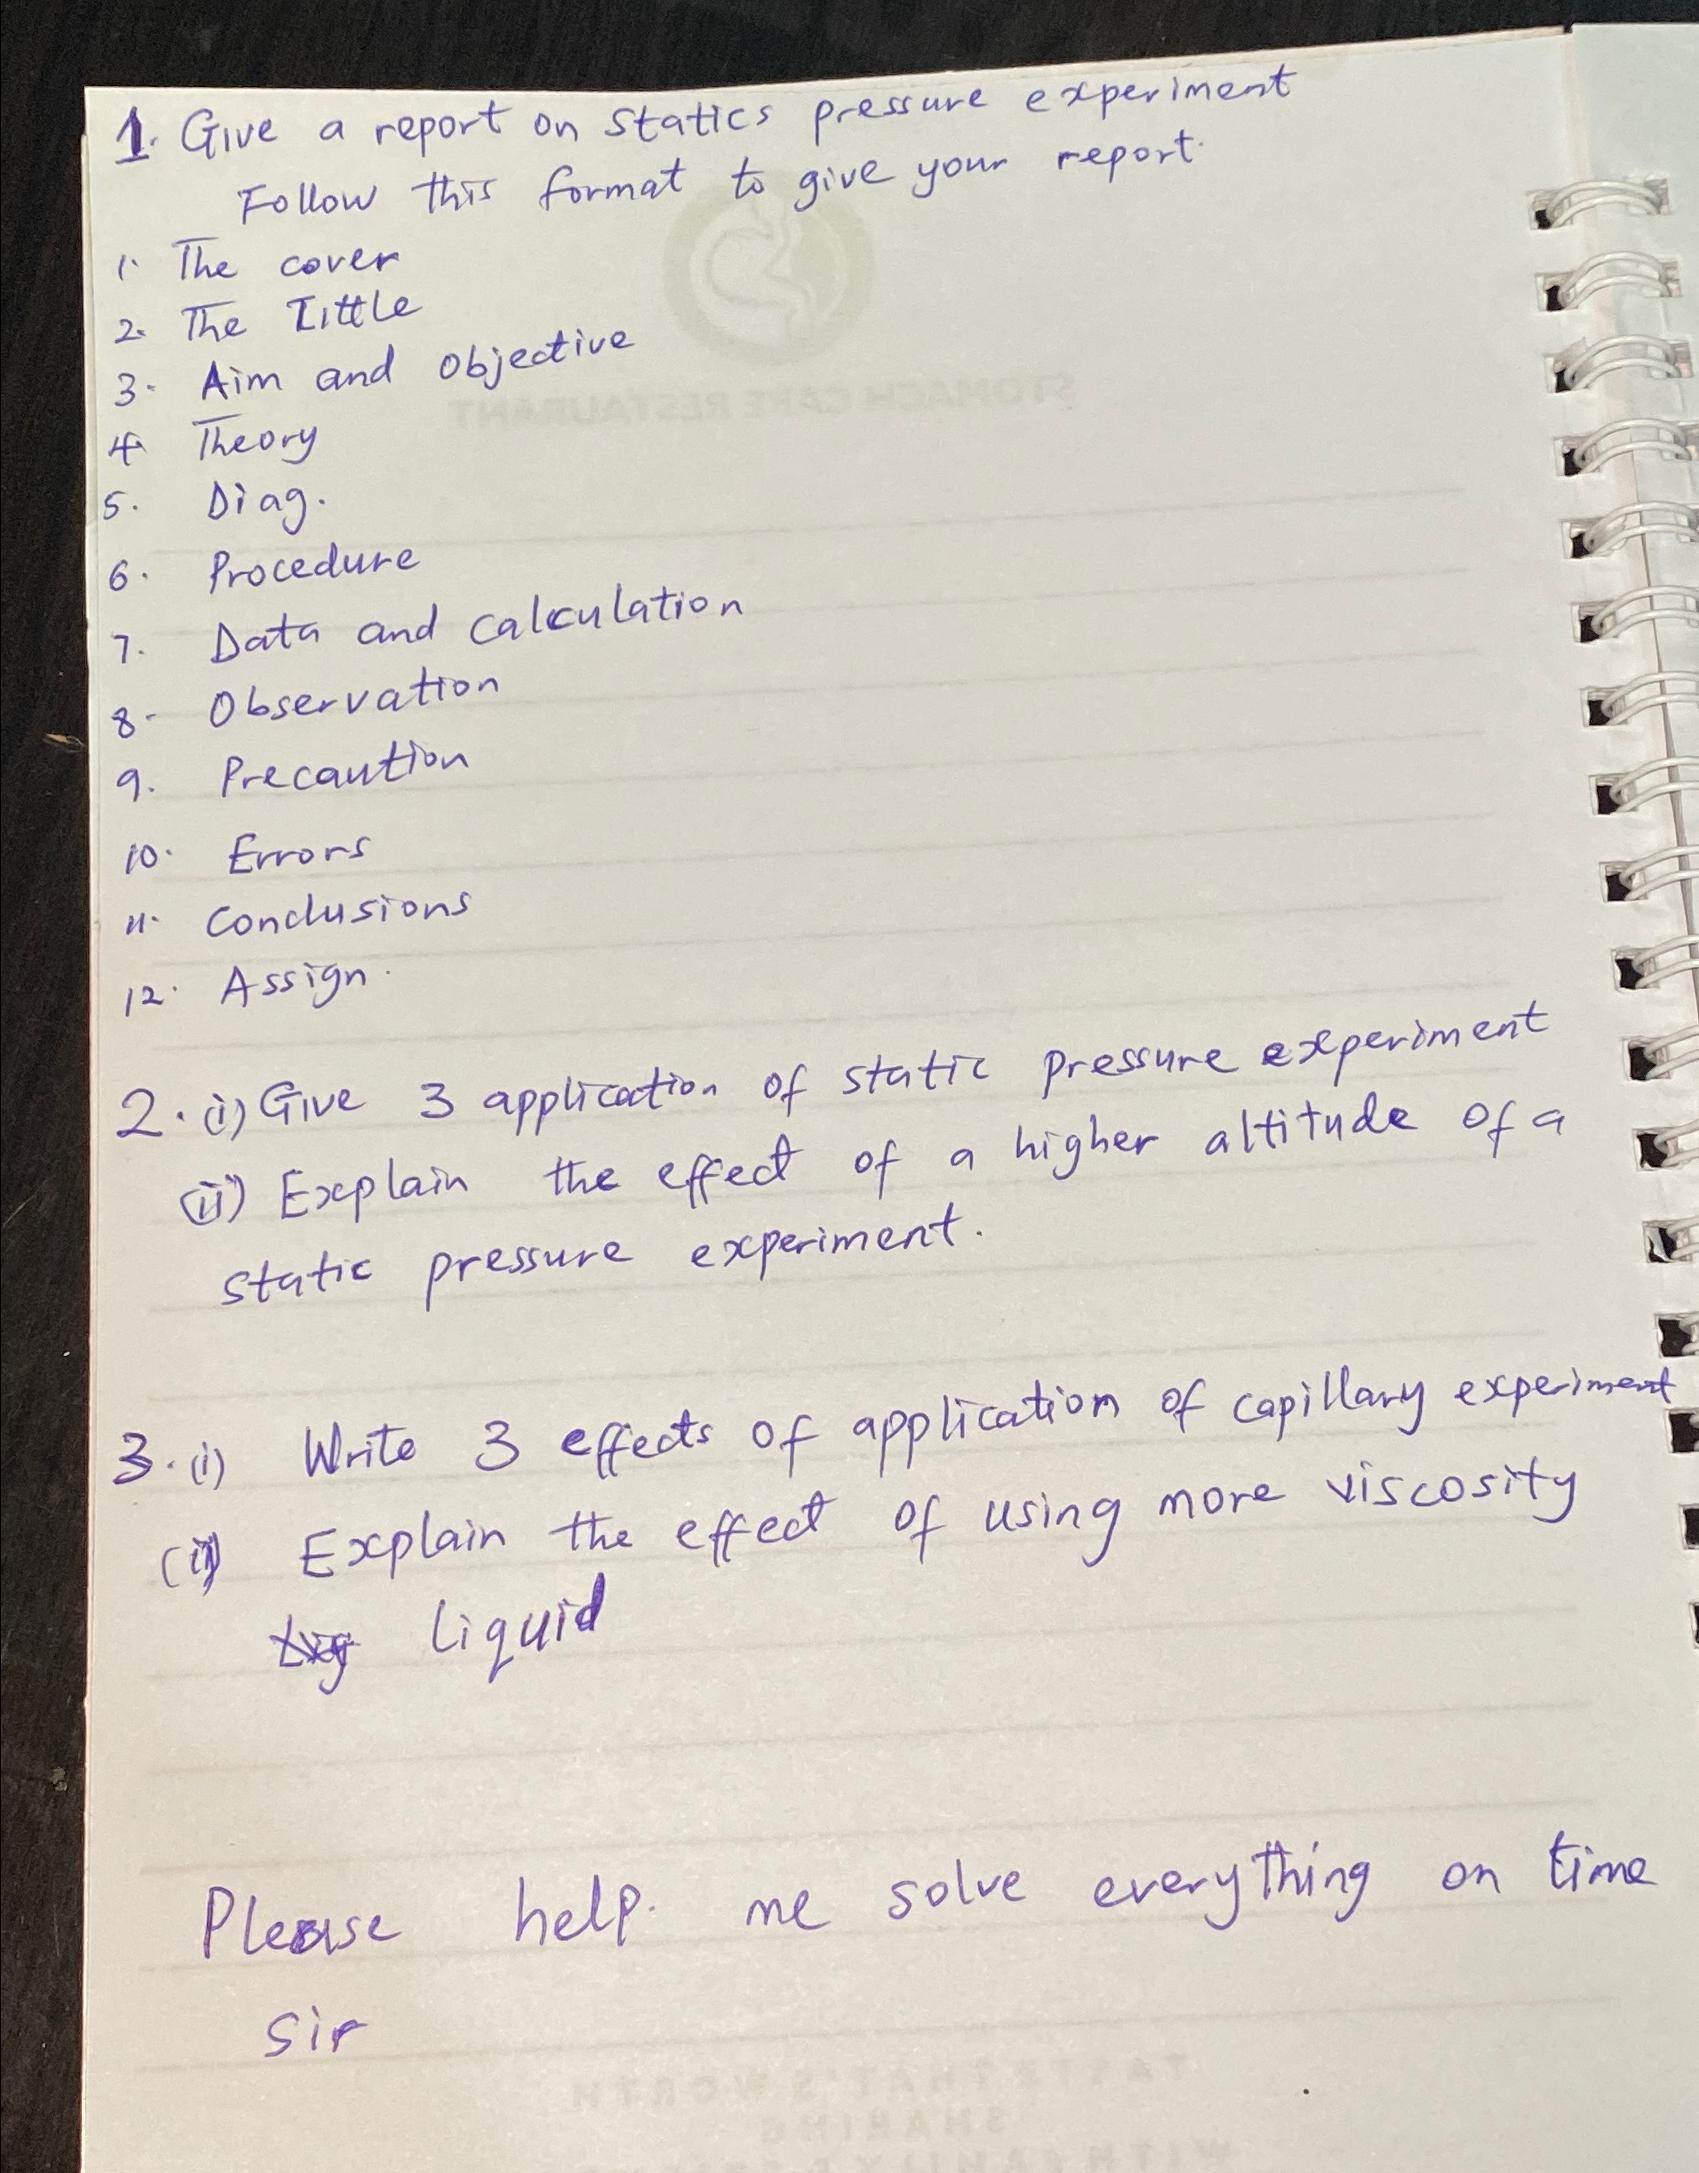 1. Give a report on statics pressure experiment
Follow this format to give your report.
1. The cover
2. The Tittle
3. Aim and objective
4 Theory
5. Diag.
6. Procedure
7. Data and calculation
8. Observation
9. Precaution
10. Errors
11. Conclusions
12. Assign.
2. (i) Give 3 application of static pressure experiment
(ii) Explain the effect of a higher altitude of a
static pressure experiment.
3. (i) Write 3 effects of application of capillary experiment
(ii) Explain the effect of using more viscosity
liquid
Please help. me solve everything on time
Sir